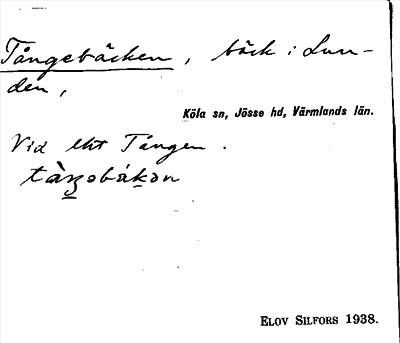 Tångebäcken, bäck i Lun-
den,
Köla sn, Jösse hd, Värmlands län.
Vid lht Tången.
ELOV SILFORS 1938.